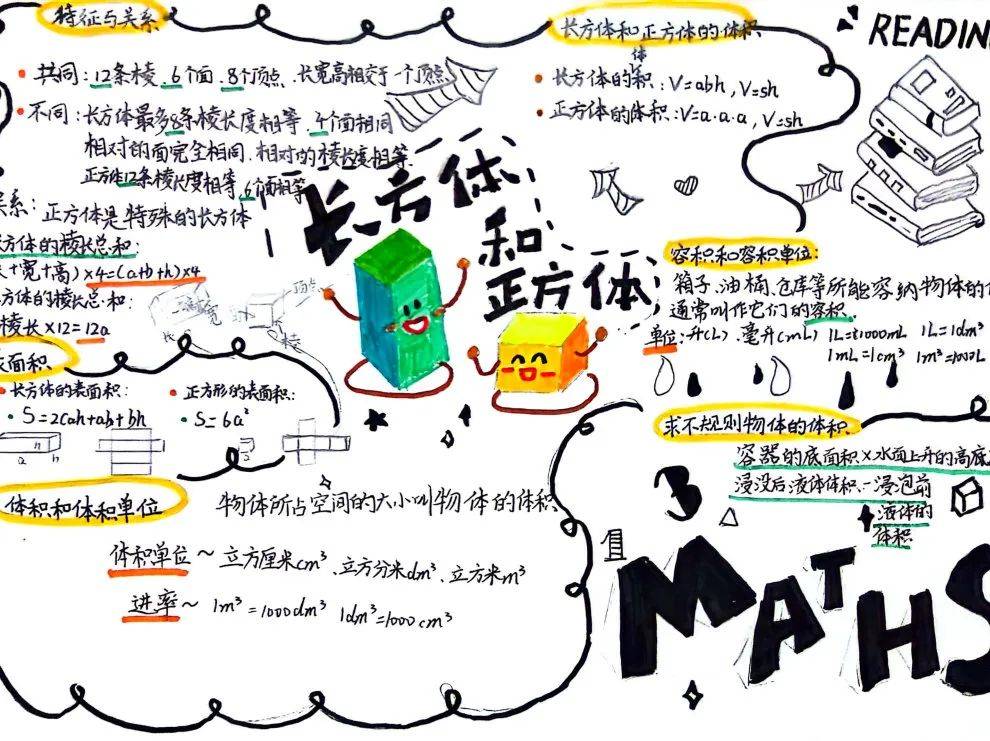 特征与关系
共同：12条棱，6个面，8个顶点，长宽高相交于一个顶点
不同：长方体最多8条棱长度相等，4个面相同
相对的面完全相同，相对的棱长度相等
正方体12条棱长度相等，6个面相等
关系：正方体是特殊的长方体
方体的棱长总和：
+宽+高）×4=(a+b+h)×4
方体的棱长总和：
棱长×12=12a
宽
顶点
长
棱
表面积
长方体的表面积：
S=2(ah+ab+bh
正方形的表面积：
S=6a²
a
h
体积和体积单位
物体所占空间的大小叫物体的体积
体积单位～立方厘米cm³、立方分米dm³、立方米m³
进率～ 1m³=1000dm³ 1dm³=1000cm³
长方体
和
正方体
长方体和正方体的体积
长方体的体积：V=abh，V=sh
正方体的体积：V=a·a·a，V=sh
READIN
容积和容积单位：
箱子、油桶、仓库等所能容纳物体的
通常叫作它们的容积
单位：升(L)、毫升(mL) 1L=1000mL 1L=1dm³
1mL=1cm³
求不规则物体的体积
容器的底面积×水面上升的高度
浸没后液体体积－浸泡前
液体的
体积
3
MATHS